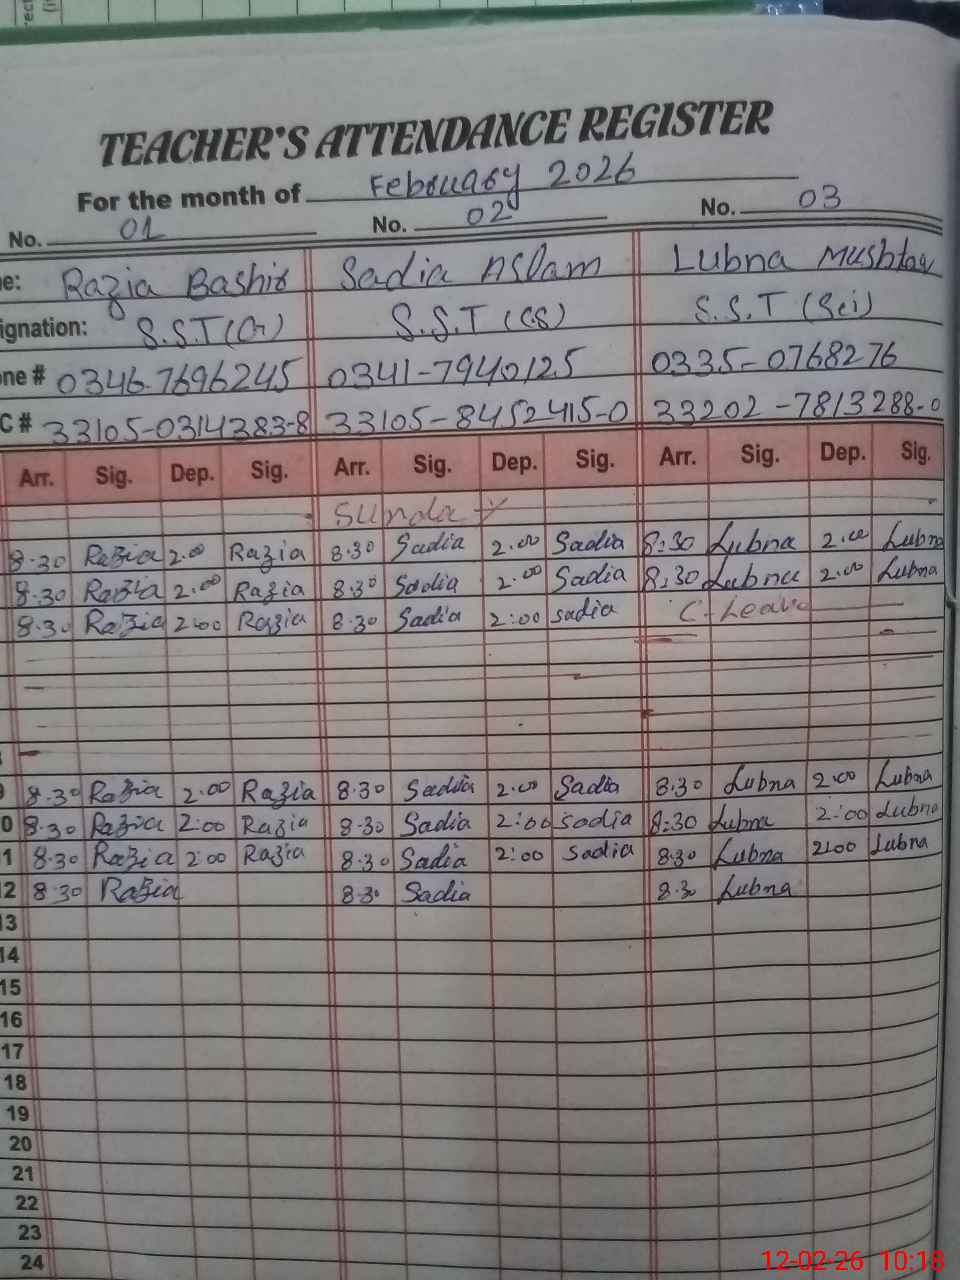 TEACHER'S ATTENDANCE REGISTER
For the month of February 2026
No. 01 No. 02 No. 03
e: Razia Bashir Sadia Aslam Lubna Mushtaq
ignation: S.S.T (Gr) S.S.T (CS) S.S.T (Sci)
one # 0346-7696245 0341-7940125 0335-0768276
C # 33105-0314383-8 33105-8452415-0 33202-7813288-0
Arr. Sig. Dep. Sig. Arr. Sig. Dep. Sig. Arr. Sig. Dep. Sig.
Sunday
8.30 Razia 2.00 Razia 8.30 Sadia 2.00 Sadia 8:30 Lubna 2.00 Lubna
8.30 Razia 2.00 Razia 8.30 Sadia 2.00 Sadia 8:30 Lubna 2.00 Lubna
8.30 Razia 2:00 Razia 8.30 Sadia 2:00 sadia C-Leave
9 8.30 Razia 2.00 Razia 8.30 Sadia 2.00 Sadia 8.30 Lubna 2.00 Lubna
0 8.30 Razia 2:00 Razia 8.30 Sadia 2:00 sadia 8:30 Lubna 2:00 Lubna
1 8.30 Razia 2:00 Razia 8.30 Sadia 2:00 Sadia 8.30 Lubna 2:00 Lubna
2 8.30 Razia 8.30 Sadia 8.30 Lubna
13
14
15
16
17
18
19
20
21
22
23
24
12-02-26 10:18